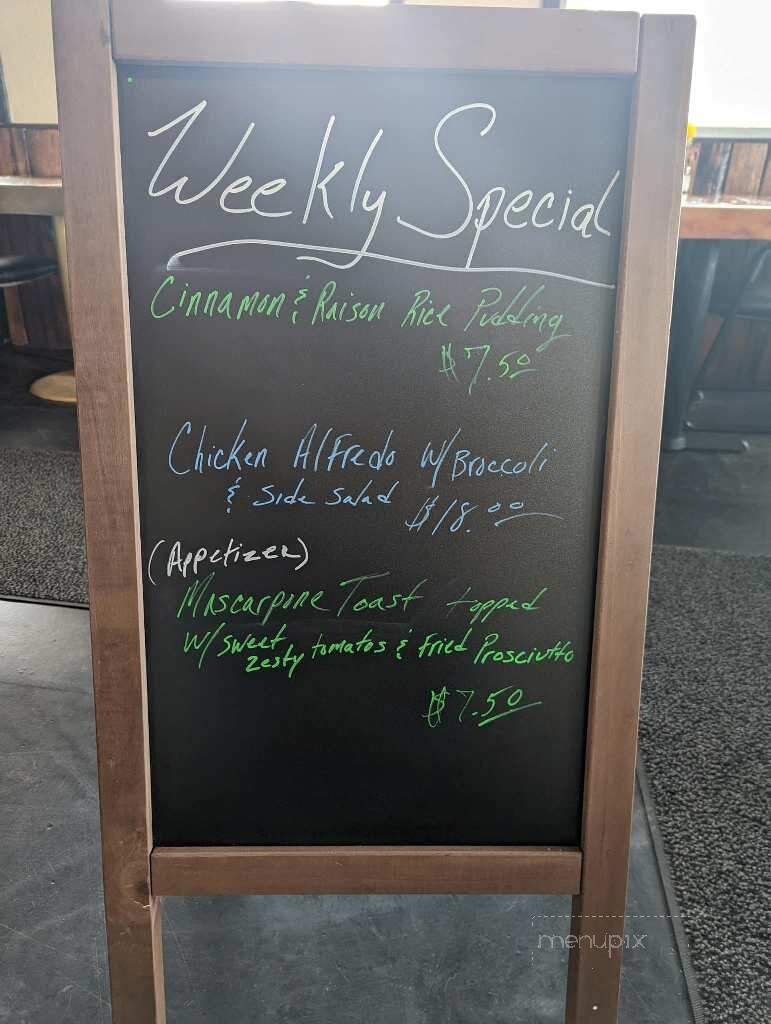 Weekly Special
Cinnamon & Raison Rice Pudding
$7.50
Chicken Alfredo w/Broccoli
& side salad $18.00
(Appetizer)
Mascarpone Toast topped
w/sweet zesty tomatos & fried Prosciutto
$7.50
menupix